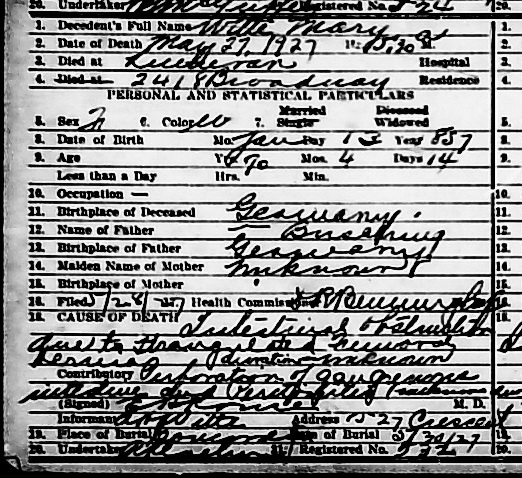 20. Undertaker Registered No. 524 20.
1. Decedent's Full Name Witte Mary 1.
2. Date of Death May 27, 1927 M. 2.
3. Died at Lutheran Hospital 3.
4. Died at 2418 Broadway Residence 4.
PERSONAL AND STATISTICAL PARTICULARS
Married Diseased
5. Sex F 6. Color W 7. Single Widowed 5.
8. Date of Birth Mo. Jan Day 13 Year 857 8.
9. Age Yrs 70 Mos. 4 Days 14 9.
Less than a Day Hrs. Min.
10. Occupation — 10.
11. Birthplace of Deceased Germany. 11.
12. Name of Father — Busching 12.
13. Birthplace of Father Germany 13.
14. Maiden Name of Mother Unknown 14.
15. Birthplace of Mother " 15.
16. Filed 5/28/27, Health Commissioner 16.
18. CAUSE OF DEATH Intestinal obstruction 18.
due to strangulated femoral
hernia duration unknown
Contributory Perforation of gangrenous
intestine and Peritonitis
(Signed) M. D.
Informant Witte Address 1527 Crescent
19. Place of Burial Date of Burial 5/30/27 19.
20. Undertaker 21. Registered No. 20.